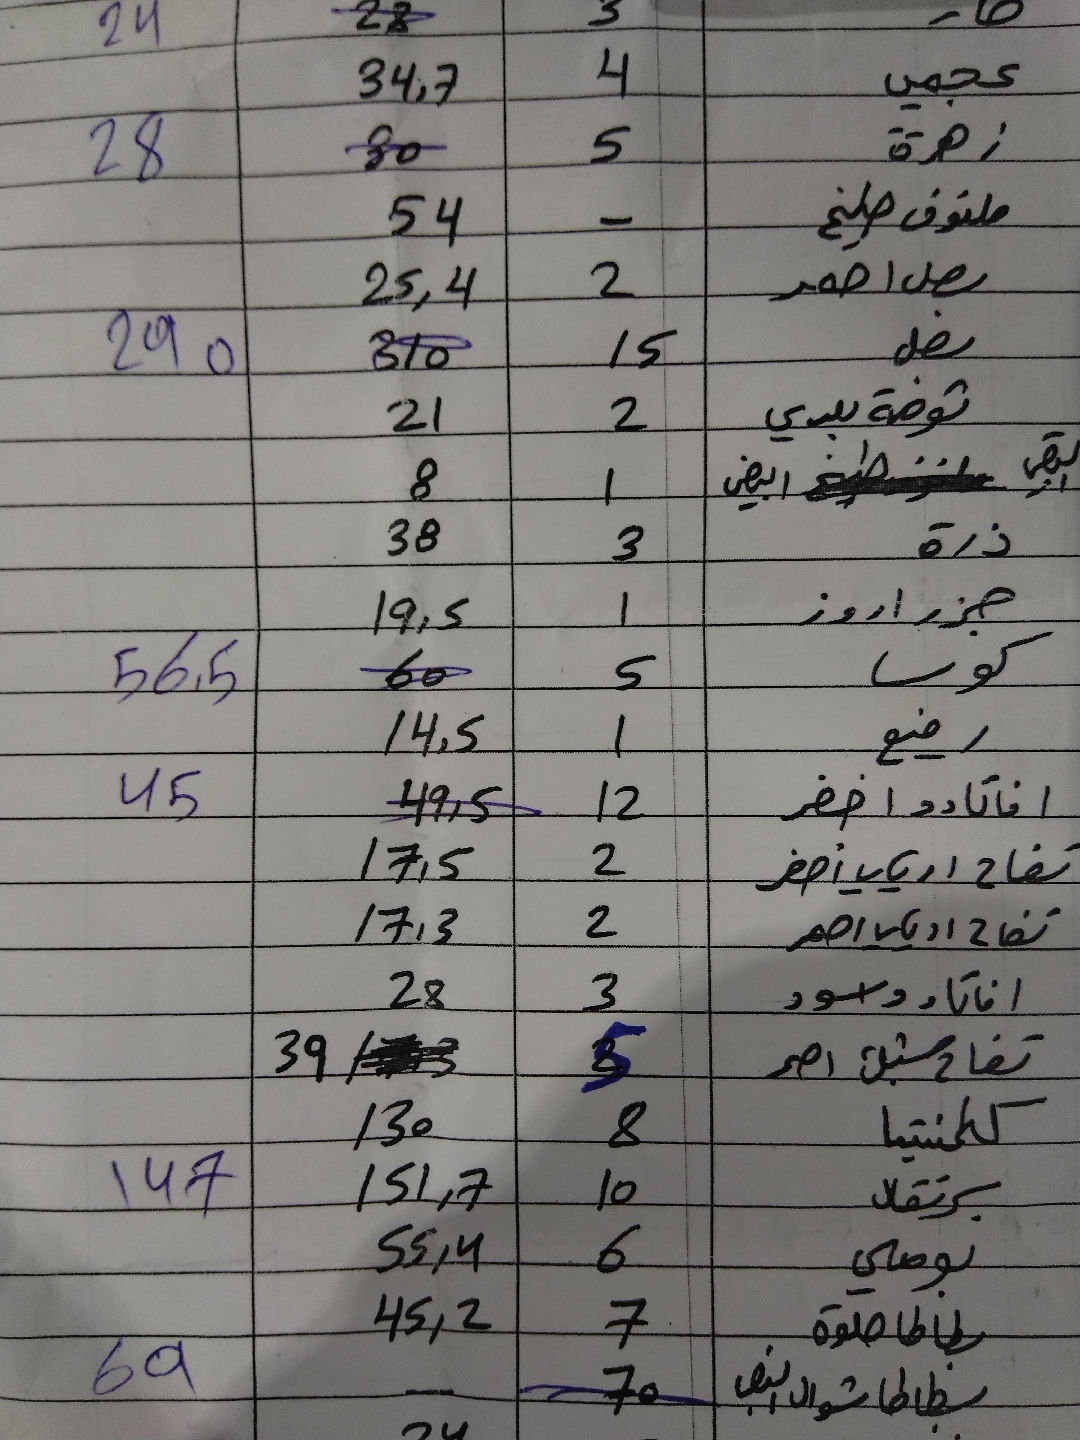 خار 3 28 24
عجمي 4 34,7
زهرة 5 30 28
ملفوف صليخ - 54
بصل احمر 2 25,4
بصل 15 310 290
توضة بلدي 2 21
ابيض ابيض 1 8
ذرة 3 38
جزر اروز 1 19,5
كوسا 5 60 56,5
رضيع 1 14,5
افاتادو اخضر 12 49,5 45
تفاح ارياب اخضر 2 17,5
تفاح ارياب احمر 2 17,3
افاتادو اسود 3 28
تفاح ستبل احمر 5 39
كلمنتيا 8 130
برتقال 10 151,7 147
بوملي 6 55,4
بطاطا حلوة 7 45,2
بطاطا شوال ابيض 70 — 69
24